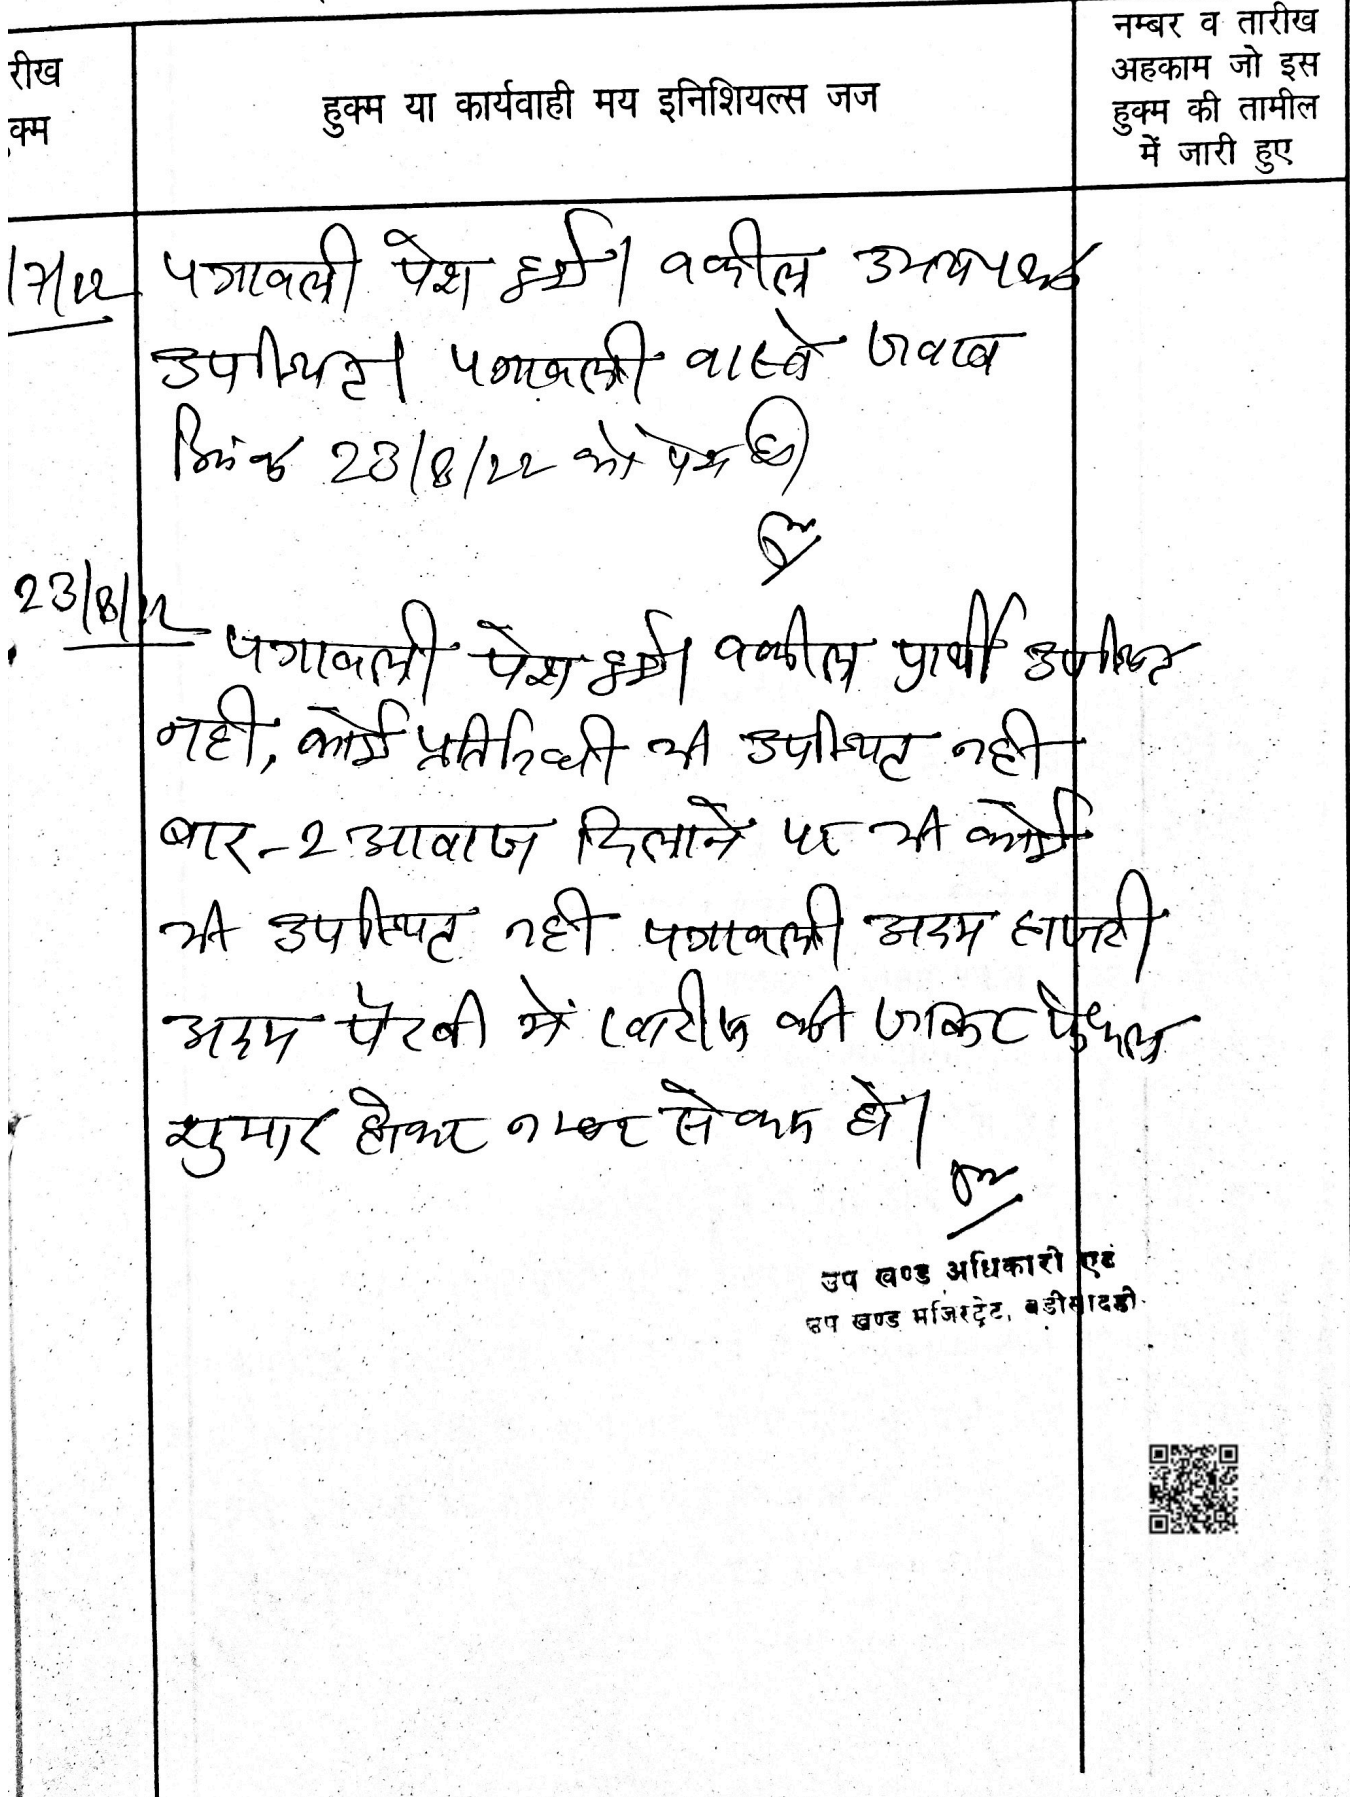 रीख
क्म
हुक्म या कार्यवाही मय इनिशियल्स जज
नम्बर व तारीख
अहकाम जो इस
हुक्म की तामील
में जारी हुए
/7/22 पत्रावली पेश हुई। वकील उभयपक्ष
उपस्थित। पत्रावली वास्ते जवाब
दिनांक 23/8/22 को पेश हो।
23/8/22
पत्रावली पेश हुई। वकील प्रार्थी उपस्थित
नही, कोई प्रतिनिधी भी उपस्थित नही
बार-2 आवाज दिलाने पर भी कोई
भी उपस्थित नही पत्रावली अदम हाजरी
अदम पैरवी में खारीज की जाकर फैसल
शुमार होकर नम्बर से कम हो।
उप खण्ड अधिकारी एवं
उप खण्ड मजिस्ट्रेट, बडीसादडी